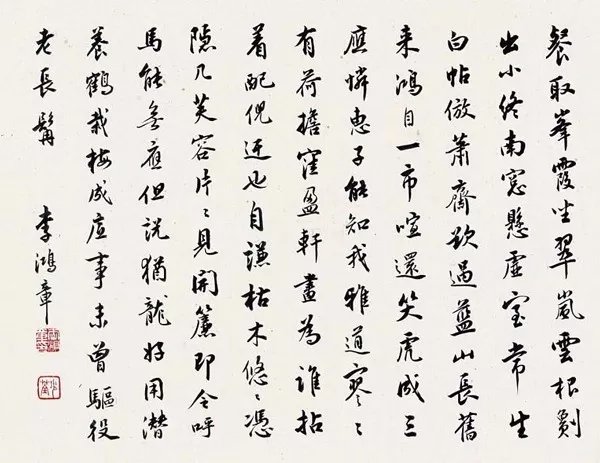 餐取峯霞坐翠嵐雲根劖
出小終南窓懸虛室常生
白帖倣蕭齋欲過藍山長舊
来鴻目一市喧還笑虎成三
應憐惠子能知我雅道寥〻
有荷擔窪盈軒畫為誰拈
着配倪迂也自謙枯木悠〻憑
隱几芙容片〻見開簾即令呼
馬能無應但説猶龍好用潛
養鶴栽梅成底事未曾驅役
老長髯
李鴻章